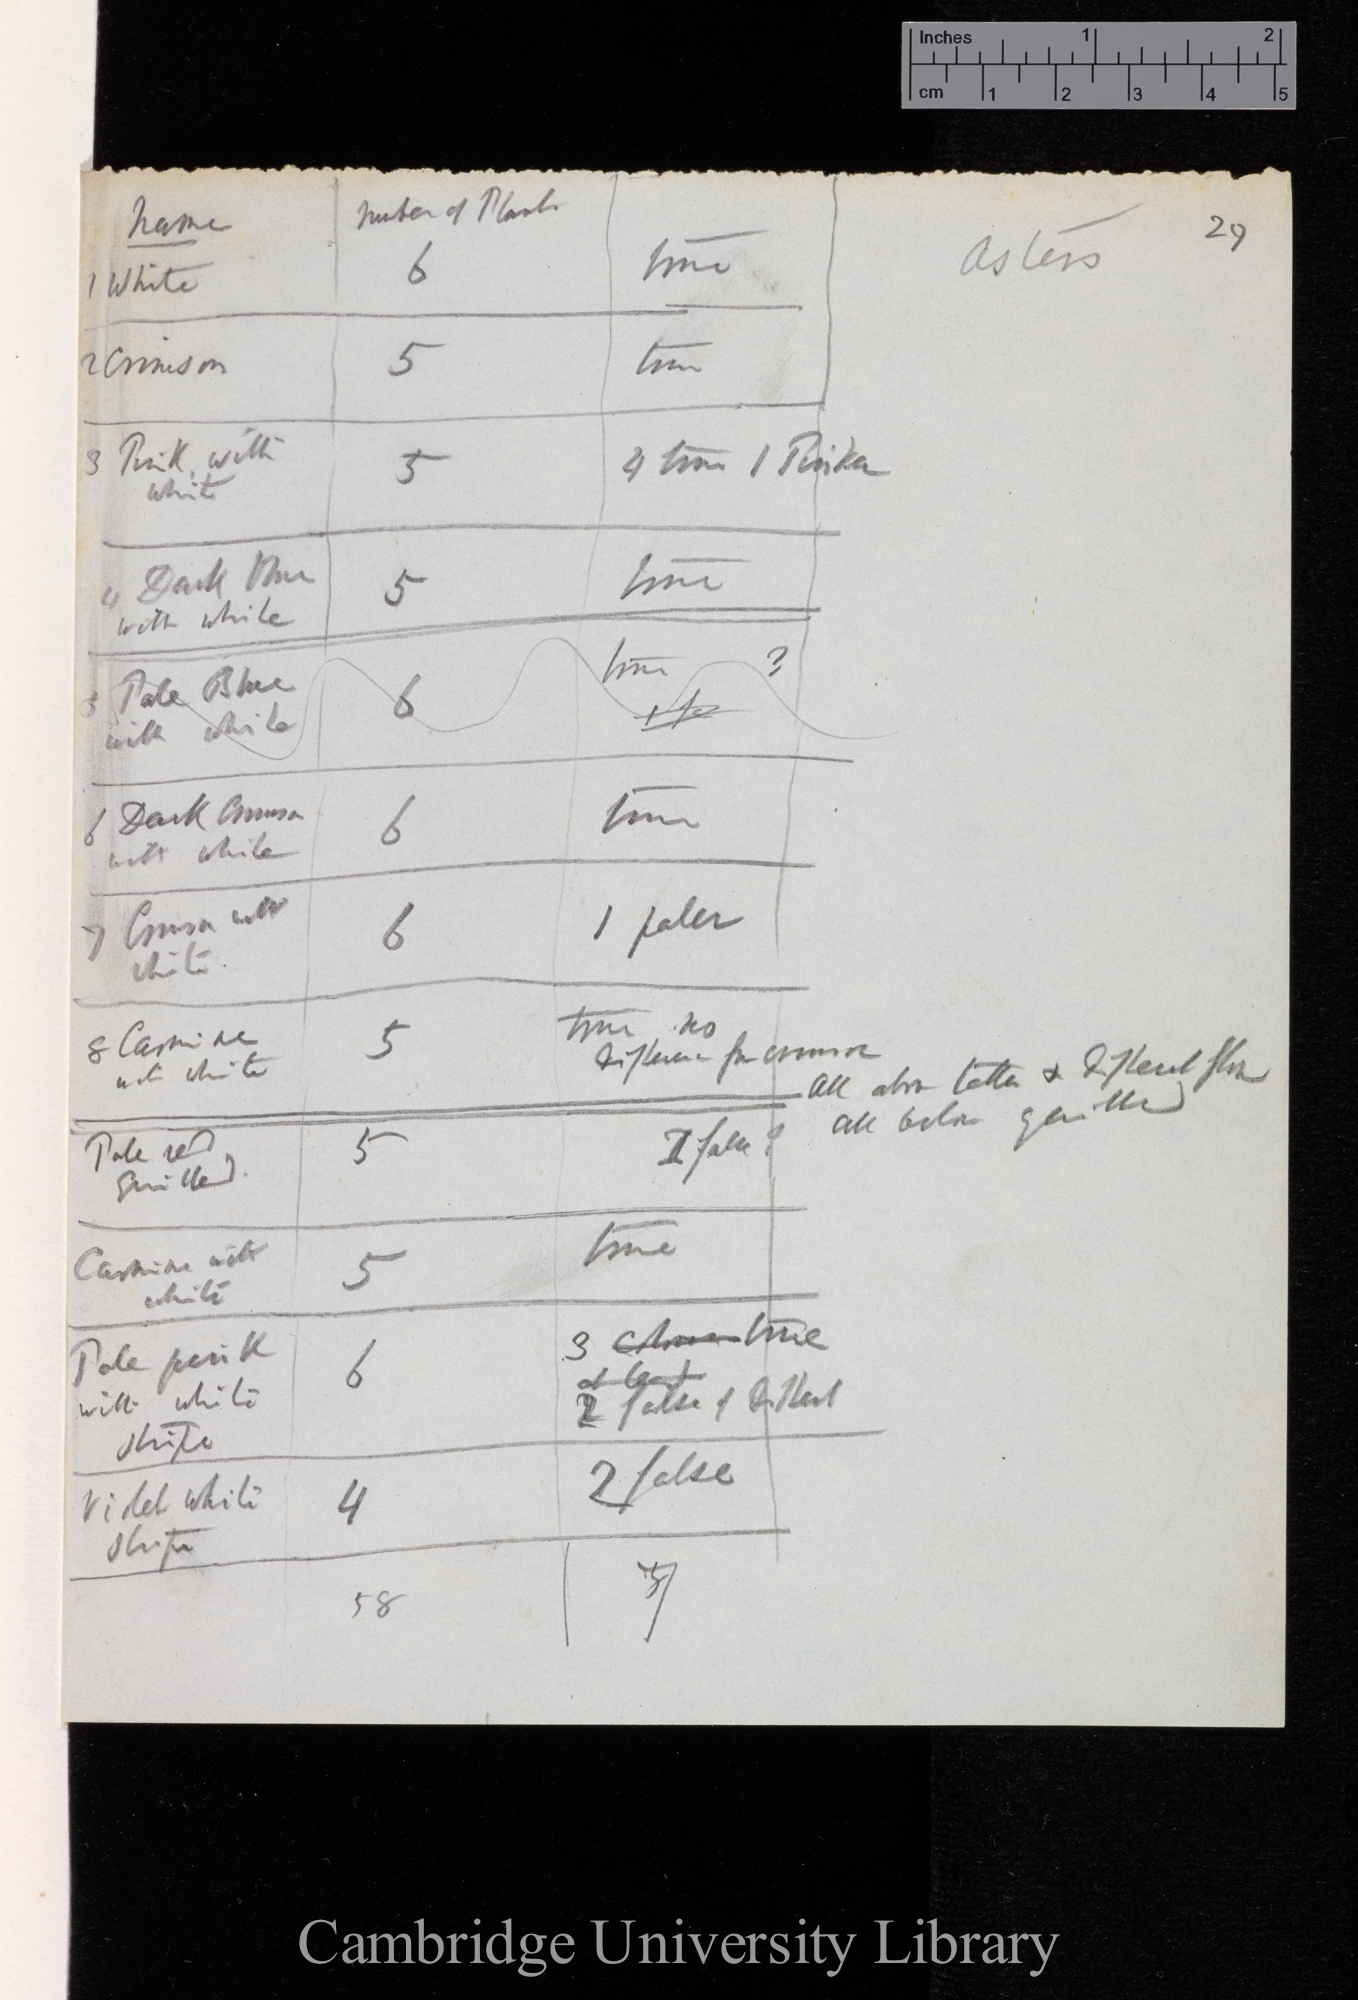 Inches 1 2
cm 1 2 3 4 5
29
Asters
Name Number of Plants
1 White 6 true
2 Crimson 5 true
3 Pink with 5 4 true 1 Pinker
white
4 Dark Blue 5 true
with white
5 Pale Blue 6 true ?
with white
6 Dark Crimson 6 true
with white
7 Crimson with 6 1 paler
white.
8 Carmine 5 true no
with white difference from crimson
All above better & different from
all below quilled
Pale red 5 1 false ?
quilled.
Carmine with 5 true
white
Pale pink 6 3 true
with white at least
stripe 2 false & different
Violet white 4 2 false
stripe
58